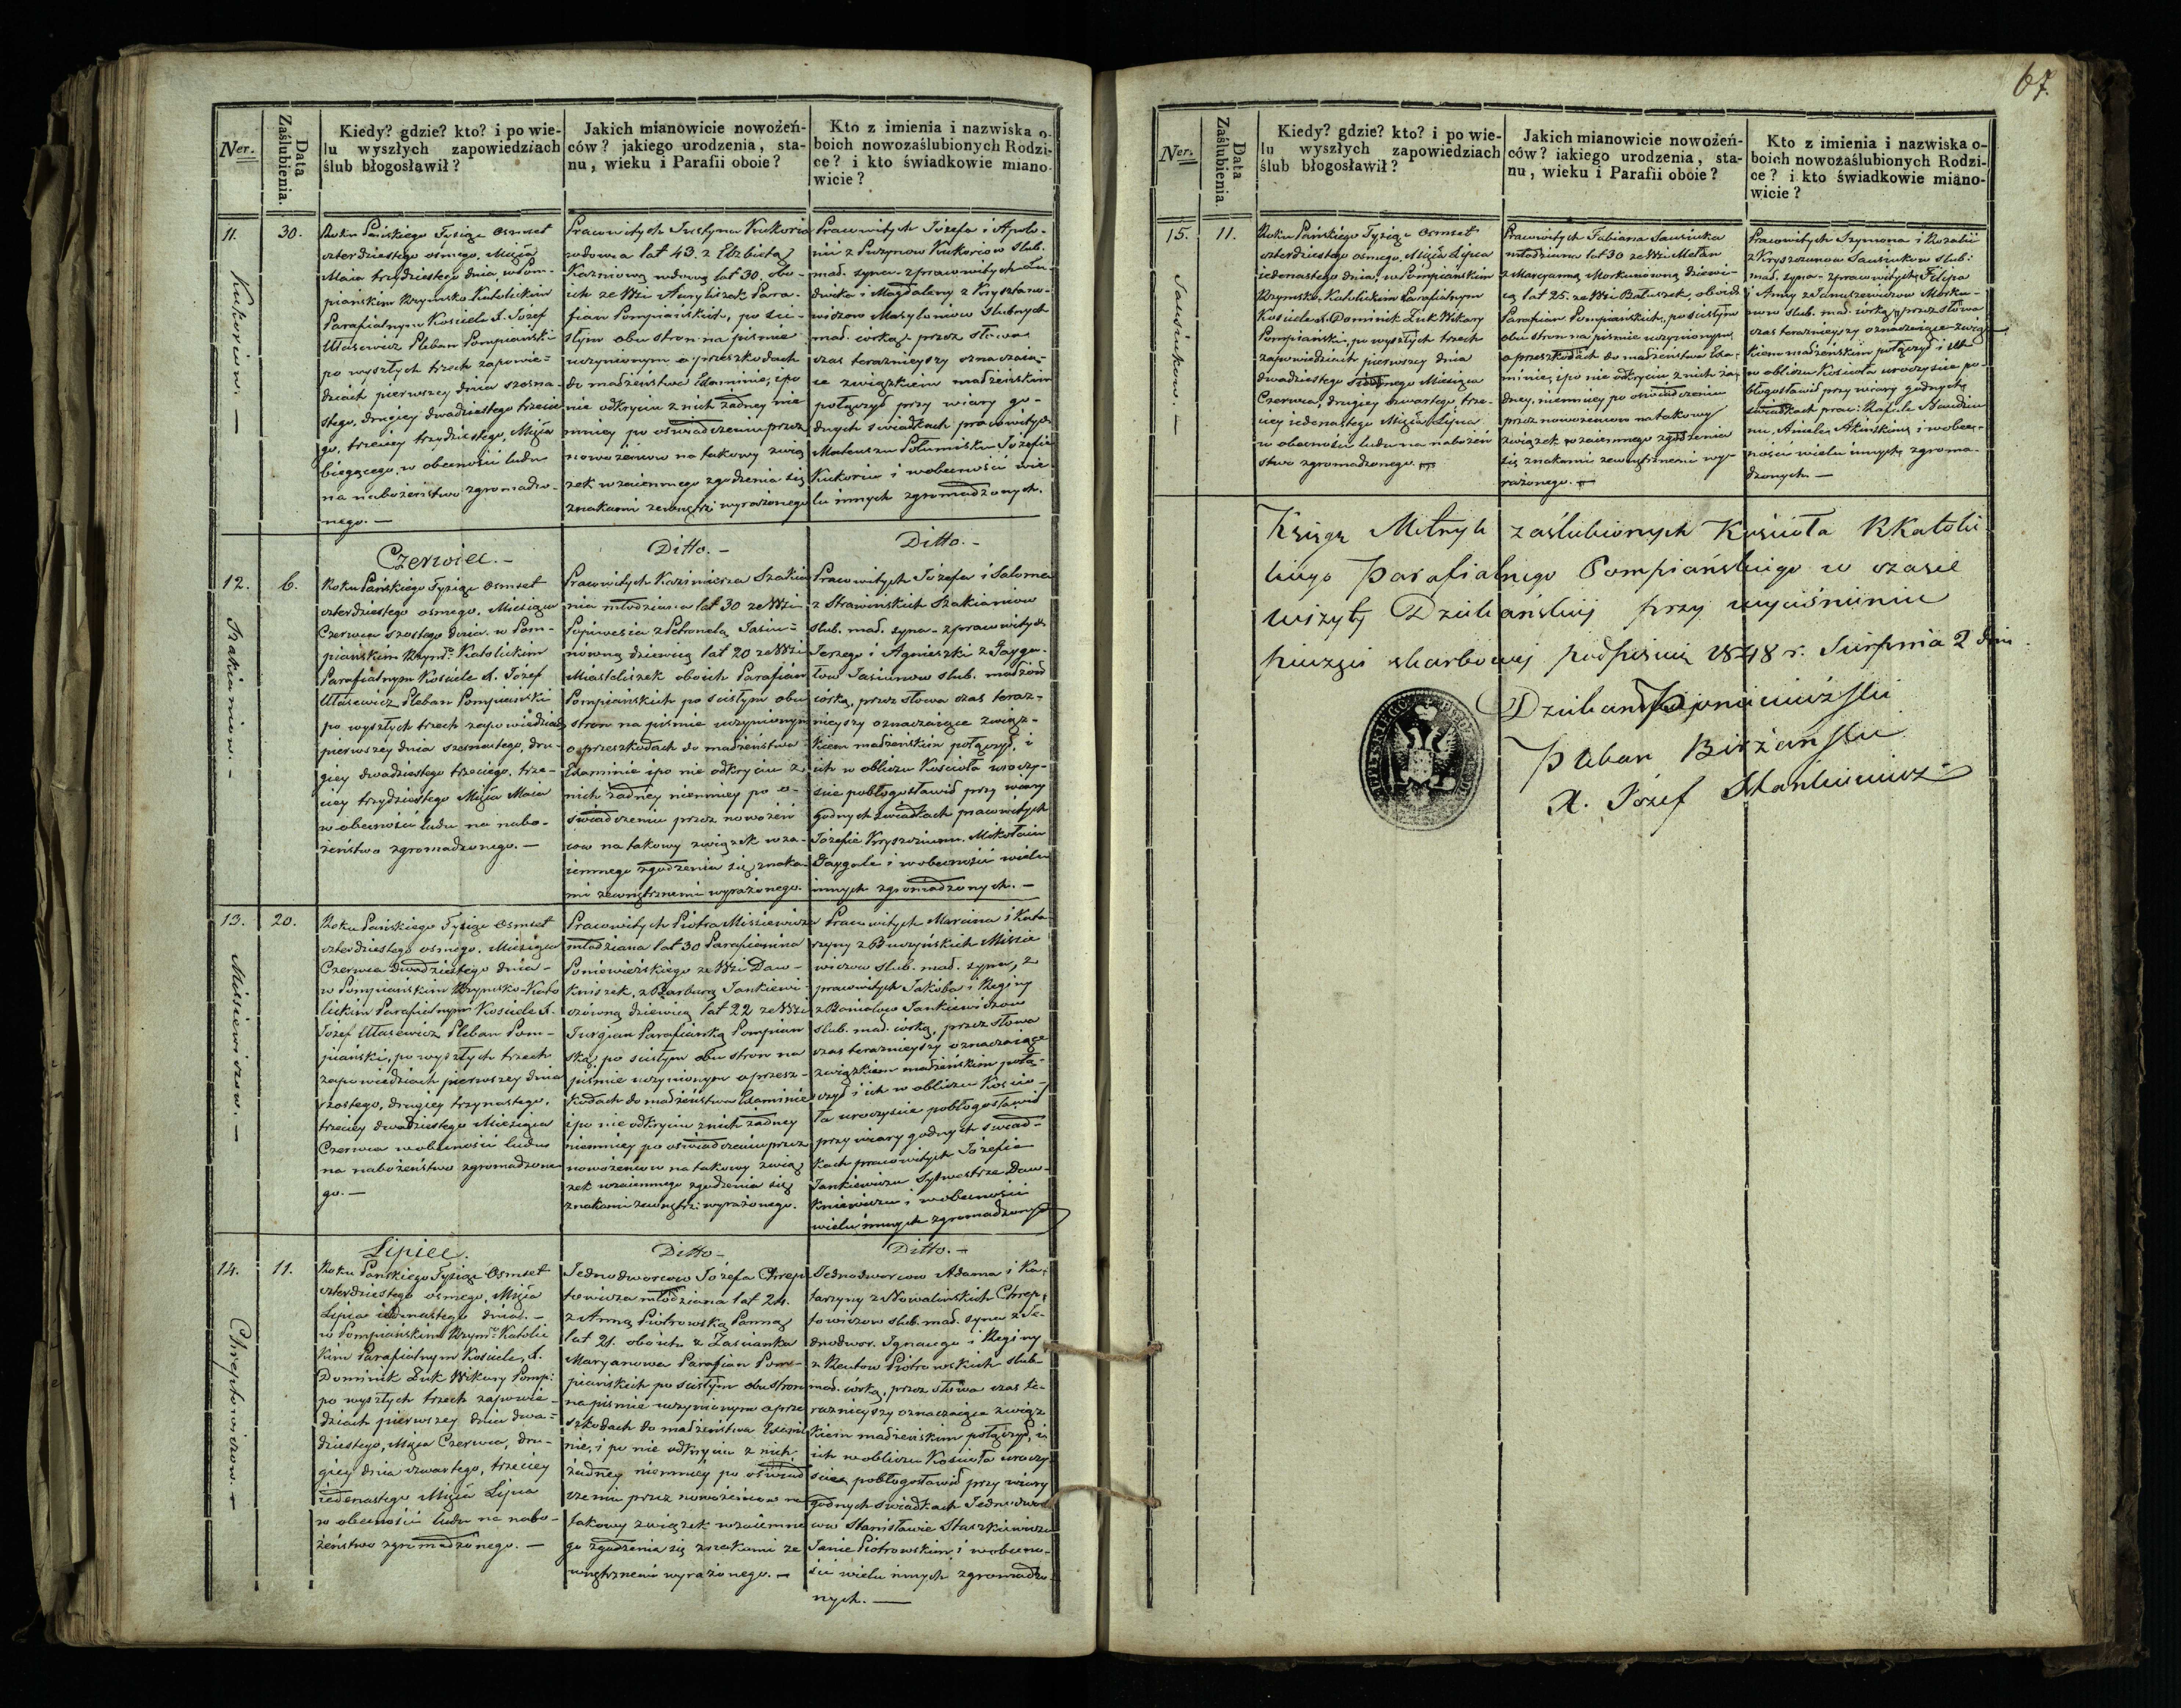 Ner.
Data
Zaślubienia.
Kiedy? gdzie? kto? i po wie-
lu wyszłych zapowiedziach
ślub błogosławił?
Jakich mianowicie nowożeń-
ców? jakiego urodzenia, sta-
nu, wieku i Parafii oboie?
Kto z imienia i nazwiska o-
boich nowozaślubionych Rodzi-
ce? i kto świadkowie miano-
wicie?
11.
30.
Roku Pańskiego Tysiąc Osmset
czterdziestego osmego, Mięsia
Maia trzydziestego dnia, w Pom-
piańskim Rzymsko Katolickim
Parafialnym Kosciele X. Jozef
Utasewicz Pleban Pompiański
po wyszłych trzech zapowie-
dziach pierwszey dnia szesna-
stego, drugiey dwadziestego trzecie
go, trzeciey trzydziestego, Mięsia
biegącego, w obecności ludu
na nabożeństwo zgromadzo-
nego. —
Pracowitych Justyna Kukoria
wdowca lat 43. z Elżbietą
wdową lat 30. obo-
ich ze Wsi Para-
fian Pompiańskich, po sci-
słym obu stron na pismie
uczynionym o przeszkodach
do małżeństwa Examinie, ipo
nie odkryciu z nich żadney nie
mniey po oświadczeniu przez
nowożeńcow na takowy zwią
zek wzaiemnego zgodzenia się
znakami zewnętrz: wyrażonego
Pracowitych Józefa i Apolo-
nii z Kukoriow slub.
mał. syna - z pracowitych Lu-
dwika i Magdaleny z Krysztano-
wiczow slubnych
mał. córką, przez słowa
czas teraznieyszy oznaczaią-
ce związkiem małżeńskim
połączył przy wiary go-
dnych swiadkach pracowitych
Mateuszu Józefie
Kukoriu i w obecności wie-
lu innych zgromadzonych.
Kukoriow. —
Czerwiec. —
Ditto. —
Ditto. —
12.
6.
Roku Pańskiego Tysiąc Osmset
czterdziestego osmego, Miesiąca
Czerwca szostego dnia. w Pom-
piańskim Rzym: Katolickim
Parafialnym Kosciele X. Józef
Utasewicz Pleban Pompiański
po wyszłych trzech zapowiedziach
pierwszey dnia szesnastego, dru-
giey dwadziestego trzeciego, trze-
ciey trzydziestego Mięsia Maia
w obecności ludu na nabo-
żeństwo zgromadzonego. —
Pracowitych Kazimierza Szakia
nia młodziana lat 30 ze Wsi
z Petronelą Jasiu-
nówną dziewicą lat 20 ze Wsi
oboich Parafian
Pompiańskich po scisłym obu
stron na pismie uczynionym
o przeszkodach do małżeństwa
Examinie ipo nie odkryciu z
nich żadney niemniey po o-
świadczeniu przez nowożeń
cow na takowy związek wza-
iemnego zgodzenia się znaka
mi zewnętrznemi wyrażonego.
Pracowitych Józefa i Salomei
z Strawinskich Szakianiow
slub. mał. syna - z pracowitych
Jerzego i Agnieszki z Gayga-
łow Jasiunow slub. małżon
córką, przez słowa czas teraz-
nieyszy oznaczaiące związ-
kiem małżeńskim połączył, i
ich w obliczu Kościoła uroczy-
scie pobłogosławił przy wiary
godnych świadkach pracowitych
Józefie Mikołaiu
Gaygale i w obecności wielu
innych zgromadzonych. —
Szakianiow. —
13.
20.
Roku Pańskiego Tysiąc Osmset
czterdziestego osmego, Miesiąca
Czerwca Dwadziestego dnia -
w Pompiańskim Rzymsko-Kato
lickim Parafialnym Kosciele X.
Józef Utasewicz Pleban Pom-
piański, po wyszłych trzech
zapowiedziach pierwszey dnia
szostego, drugiey trzynastego,
trzeciey dwadziestego Miesiąca
Czerwca w obecności ludu
na nabożeństwo zgromadzone
go. —
Pracowitych Piotra Missiewicza
młodziana lat 30 Parafianina
Poniewieżskiego ze Wsi Daw-
kniszek, z Barbarą Jankiewi
czówną dziewicą lat 22 ze Wsi
Jurgian Parafianką Pompian
ską, po scisłym obu stron na
pismie uczynionym o przesz-
kodach do małżeństwa Examinie
ipo nie odkryciu z nich żadney
niemniey po oświadczeniu przez
nowożeńcow na takowy zwią
zek wzaiemnego zgodzenia się
znakami zewnętrz: wyrażonego.
Pracowitych Marcina i Kata
rzyny z Buczyńskich Missie
wiczow slub. mał. syna, z
pracowitych Jakóba i Reginy
z Jankiewiczow
slub. mał. córką, przez słowa
czas teraznieyszy oznaczaiące
związkiem małżeńskim połą-
czył i ich w obliczu Koscio-
ła uroczyscie pobłogosławił
przy wiary godnych świad-
kach pracowitych Józefie
Jankiewiczu Sylwestrze Daw-
kniewiczu i w obecności
wielu innych zgromadzonych
Missiewiczow. —
Lipiec.
Ditto —
Ditto. —
14.
11.
Roku Pańskiego Tysiąc Osmset
czterdziestego osmego, Mięsia
Lipca iedenastego dnia. —
w Pompiańskim Rzym: Katolic
kim Parafialnym Kosciele, X.
Dominik Żuk Wikary Pomp:
po wyszłych trzech zapowie-
dziach pierwszey dnia dwa-
dziestego, Mięsia Czerwca, dru-
giey dnia czwartego, trzeciey
iedenastego Mięsia Lipca
w obecności ludu na nabo-
żeństwo zgromadzonego. —
Jednodworcow Józefa Chrep
towicza młodziana lat 24.
z Anną Piotrowską Panną
lat 21. oboich z Zascianka
Maryanowa Parafian Pom-
piańskich po scisłym obu stron
na pismie uczynionym o prze
szkodach do małżeństwa Exami
nie, i po nie odkryciu z nich
żadney niemniey po oświad
czeniu przez nowożeńcow na
takowy związek wzaiemne
go zgodzenia się znakami ze
wnętrznemi wyrażonego. —
Jednodworcow Adama i Ka-
tarzyny z Nowalinskich Chrep-
towiczow slub. mał. syna z Je-
dnodwor. Ignacego i Reginy
z Reutow Piotrowskich slub-
mał. córką, przez słowa czas te-
raznieyszy oznaczaiące związ
kiem małżeńskim połączył, i
ich w obliczu Kościoła uroczy
scie pobłogosławił przy wiary
godnych świadkach Jednodwor
cow Stanisławie Staszkiewiczu
Janie Piotrowskim i w obecno-
ści wielu innych zgromadzo-
nych. —
Chreptowiczow. —
67.
Ner.
Data
Zaślubienia.
Kiedy? gdzie? kto? i po wie-
lu wyszłych zapowiedziach
ślub błogosławił?
Jakich mianowicie nowożeń-
ców? iakiego urodzenia, sta-
nu, wieku i Parafii oboie?
Kto z imienia i nazwiska o-
boich nowozaślubionych Rodzi-
ce? i kto świadkowie miano-
wicie?
15.
11.
Roku Pańskiego Tysiąc Osmset
czterdziestego osmego, Mięsia Lipca
iedenastego dnia, w Pompiańskim
Rzymsko Katolickim Parafialnym
Kosciele X. Dominik Żuk Wikary
Pompiański, po wyszłych trzech
zapowiedziach pierwszey dnia
dwadziestego Miesiąca
Czerwca, drugiey czwartego, trze-
ciey iedenastego Mięsia Lipca
w obecności ludu na nabożeń
stwo zgromadzonego. —
Pracowitych Fabiana
młodziana lat 30 ze Wsi
z Maryanną Morkuniówną dziewi-
cą lat 25. ze Wsi Bałuszek, oboich
Parafian Pompiańskich, po scisłym
obu stron na pismie uczynionym
o przeszkodach do małżeństwa Exa-
minie, i po nie odkryciu z nich ża-
dney, niemniey po oświadczeniu
przez nowożeńcow na takowy
związek wzaiemnego zgodzenia
się znakami zewnętrznemi wy-
rażonego. —
Pracowitych Szymona i Rozalii
z slub:
mał. syna - z pracowitych Filipa
i Anny z Januszewiczow Morku-
now slub. mał. córką, przez słowa
czas teraznieyszy oznaczaiące zwią-
kiem małżeńskim połączył i ich
w obliczu Kościoła uroczyscie po-
błogosławił przy wiary godnych
świadkach prac: Rafale
i w obec-
ności wielu innych zgroma-
dzonych —
Księgę Metryk zaślubionych Kościoła RKatolic
kiego Parafialnego Pompiańskiego w czasie
wizyty Dziekańskiej przy wyciśnieniu
pieczęci skarbowej podpisuię 1848 r. Sierpnia 2 dnia.
Dziekan
Pleban Birżański
X. Józef Stankiewicz